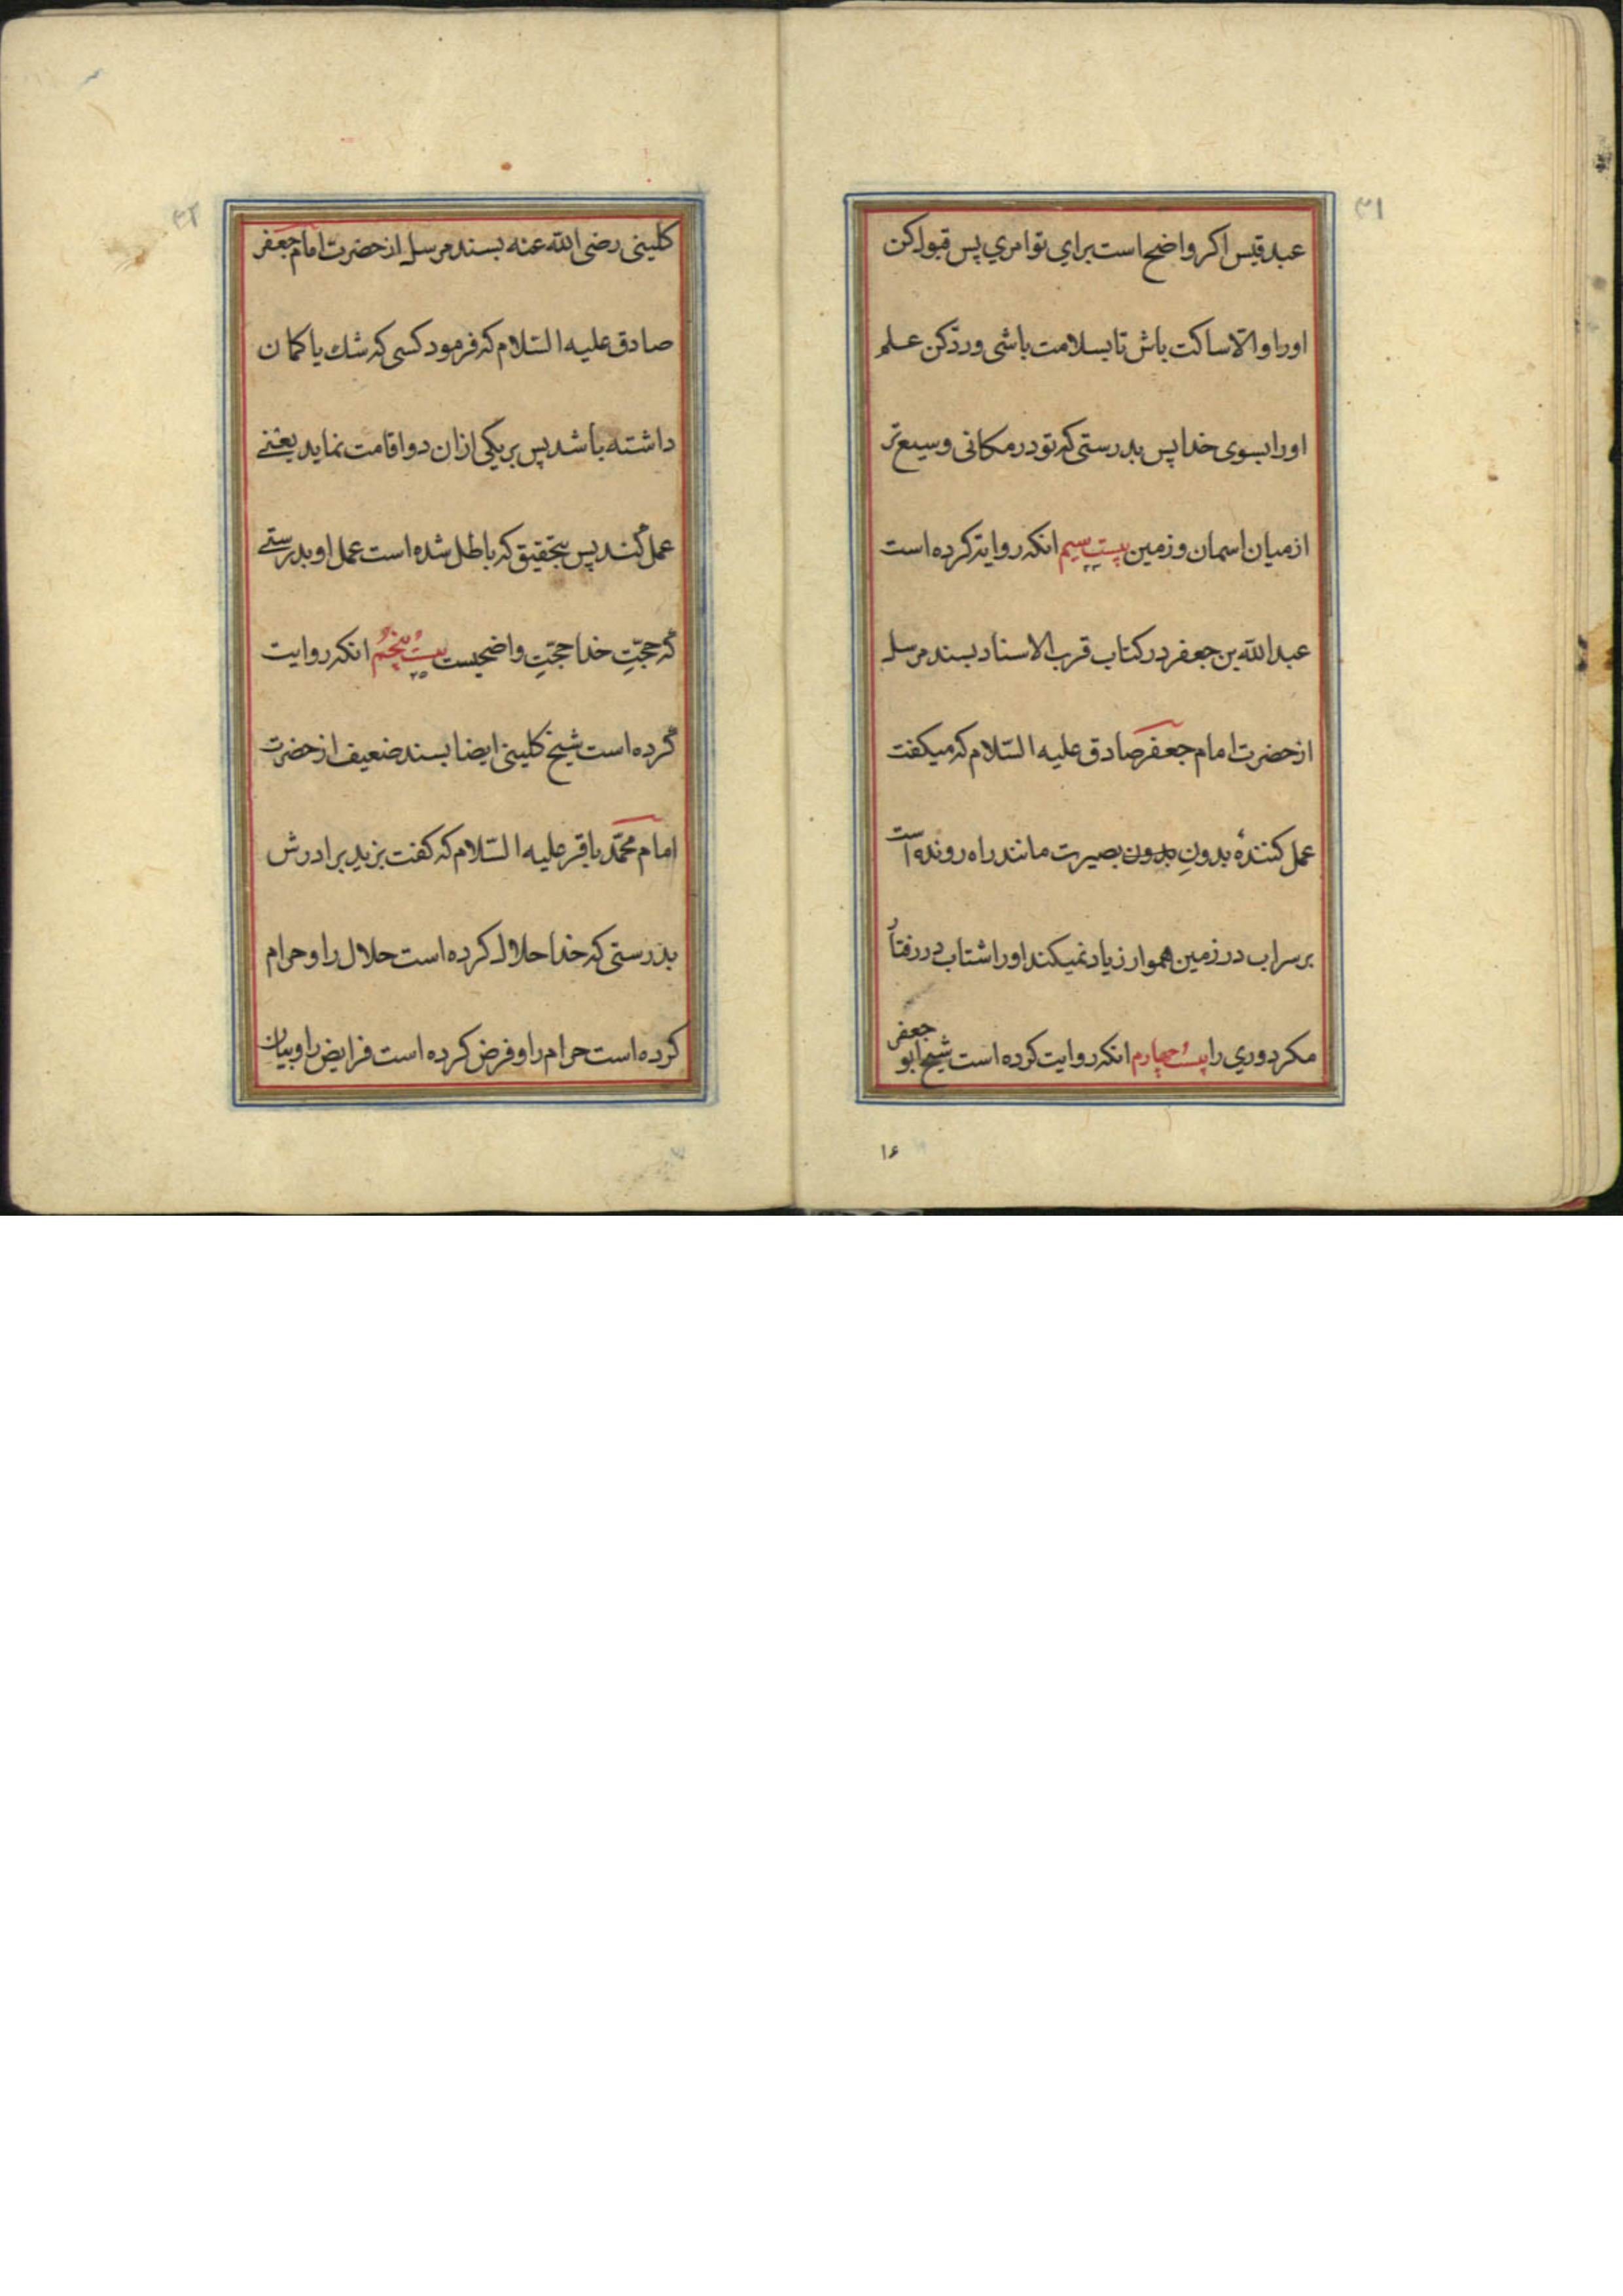 ۳۱
عبد قیس اکر واضح است برای تو امری پس قبول کن
اورا و الّا ساکت باش تا بسلامت باشی و ردّ کن علم
اورا بسوی خدا پس بدرستی که تو در مکانی وسیع تر
از میان اسمان و زمین بیست سیم انکه روایة کرده است
۲۳
عبدالله بن جعفر در کتاب قرب الاسناد بسند مرسل
از حضرت امام جعفر صادق علیه السّلام که میکفت
عمل کنندهٔ بدونِ بدون بصیرت مانند راه رونده است
بر سراب در زمین هموار زیاد نمیکند اورا شتاب در رفتار
مکر دوری را بیست چهارم انکه روایت کرده است شیخ ابو جعفر
۱۶
۳۲
کلینی رضی الله عنه بسند مرسل از حضرت امام جعفر
صادق علیه السّلام که فرمود کسی که شك یا کمان
داشته باشد پس بر یکی از ان دو اقامت نماید یعنے
عمل کند پس بتحقیق که باطل شده است عمل او بدرستے
که حجّتِ خدا حجّتِ واضحیست بیست پنجم انکه روایت
۲۵
کرده است شیخ کلینی ایضا بسند ضعیف از حضرت
امام محمّد باقر علیه السّلام که کفت بزید برادرش
بدرستی که خدا حلال کرده است حلال را و حرام
کرده است حرام را و فرض کرده است فرایض را و بیان